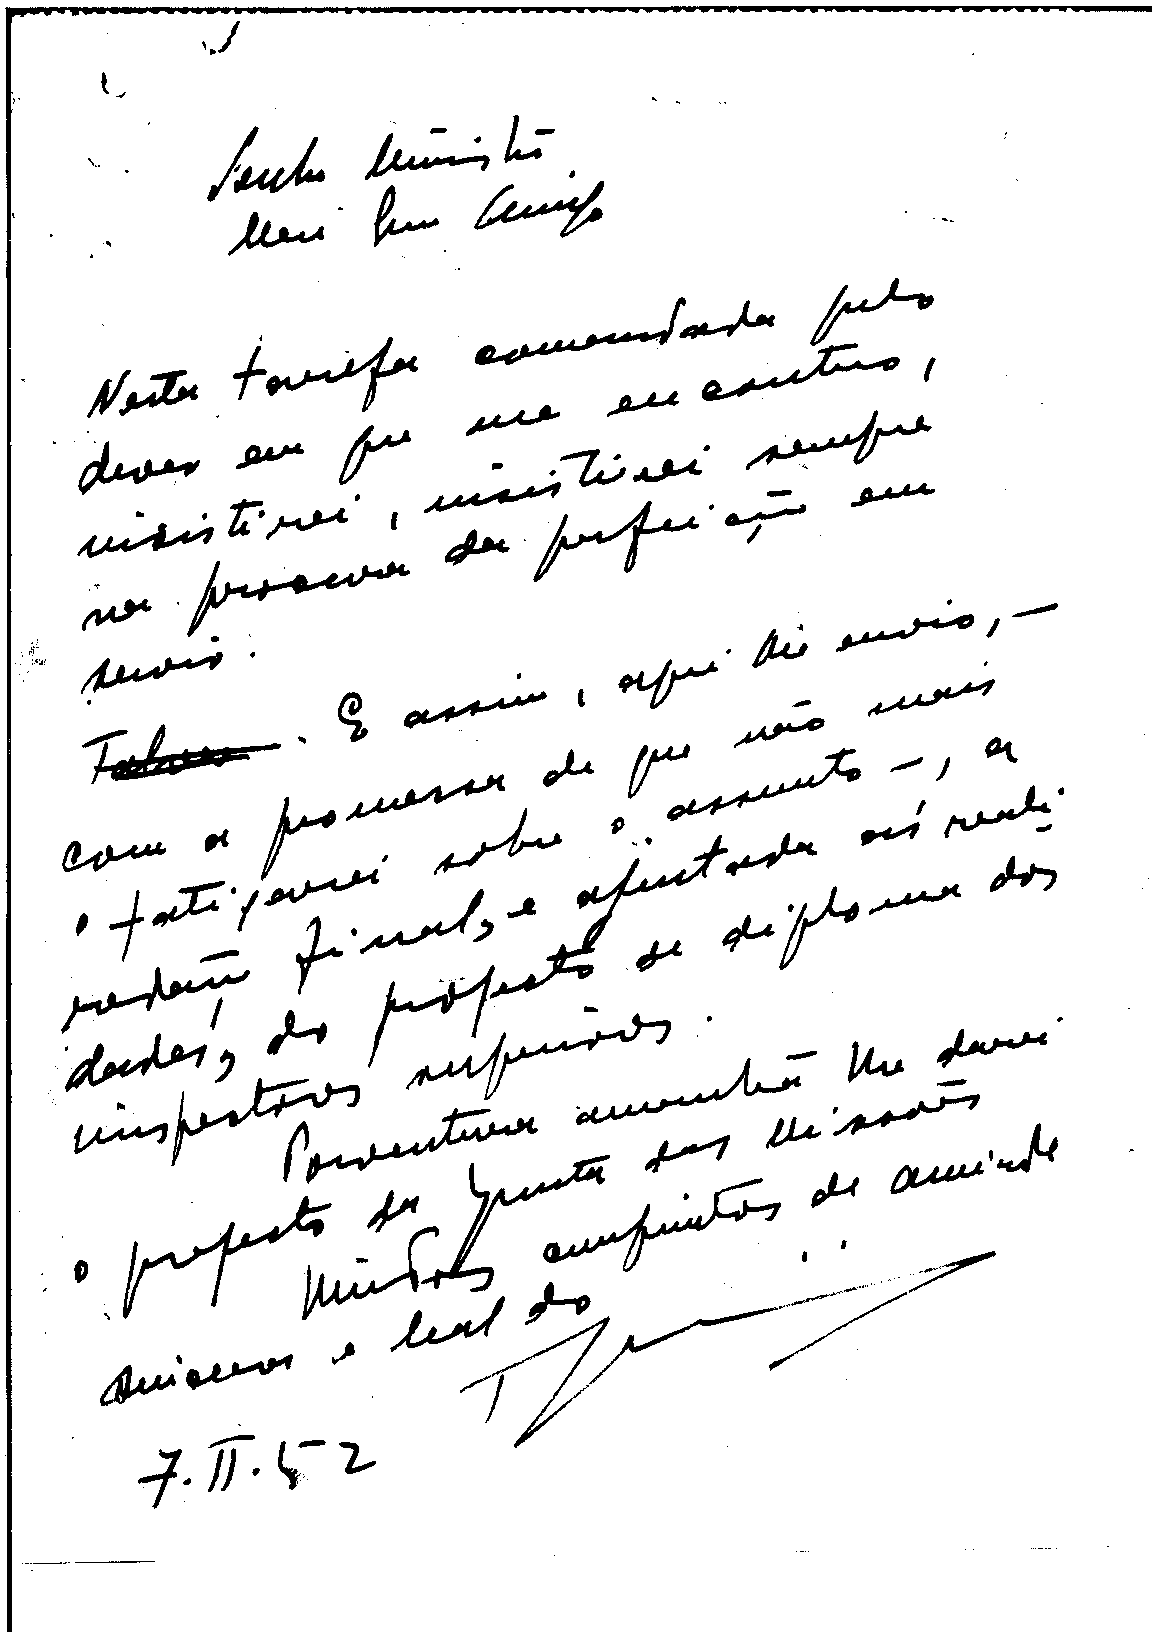 Senhor Ministro
Meu bom Amigo
Nesta tarefa comandada pelo
dever em que me encontro,
insistirei, insistirei sempre
na procura da perfeição em
servir.
. E assim, aqui lhe envio, –
com a promessa de que não mais
o fatigarei sobre o assunto –, a
redação final, e ajustada às reali
dades, do projecto de diploma dos
inspectores superiores.
Porventura amanhã lhe darei
o projecto da Junta das Missões
cumprimentos de amizade
sincera e leal do
7.II.52